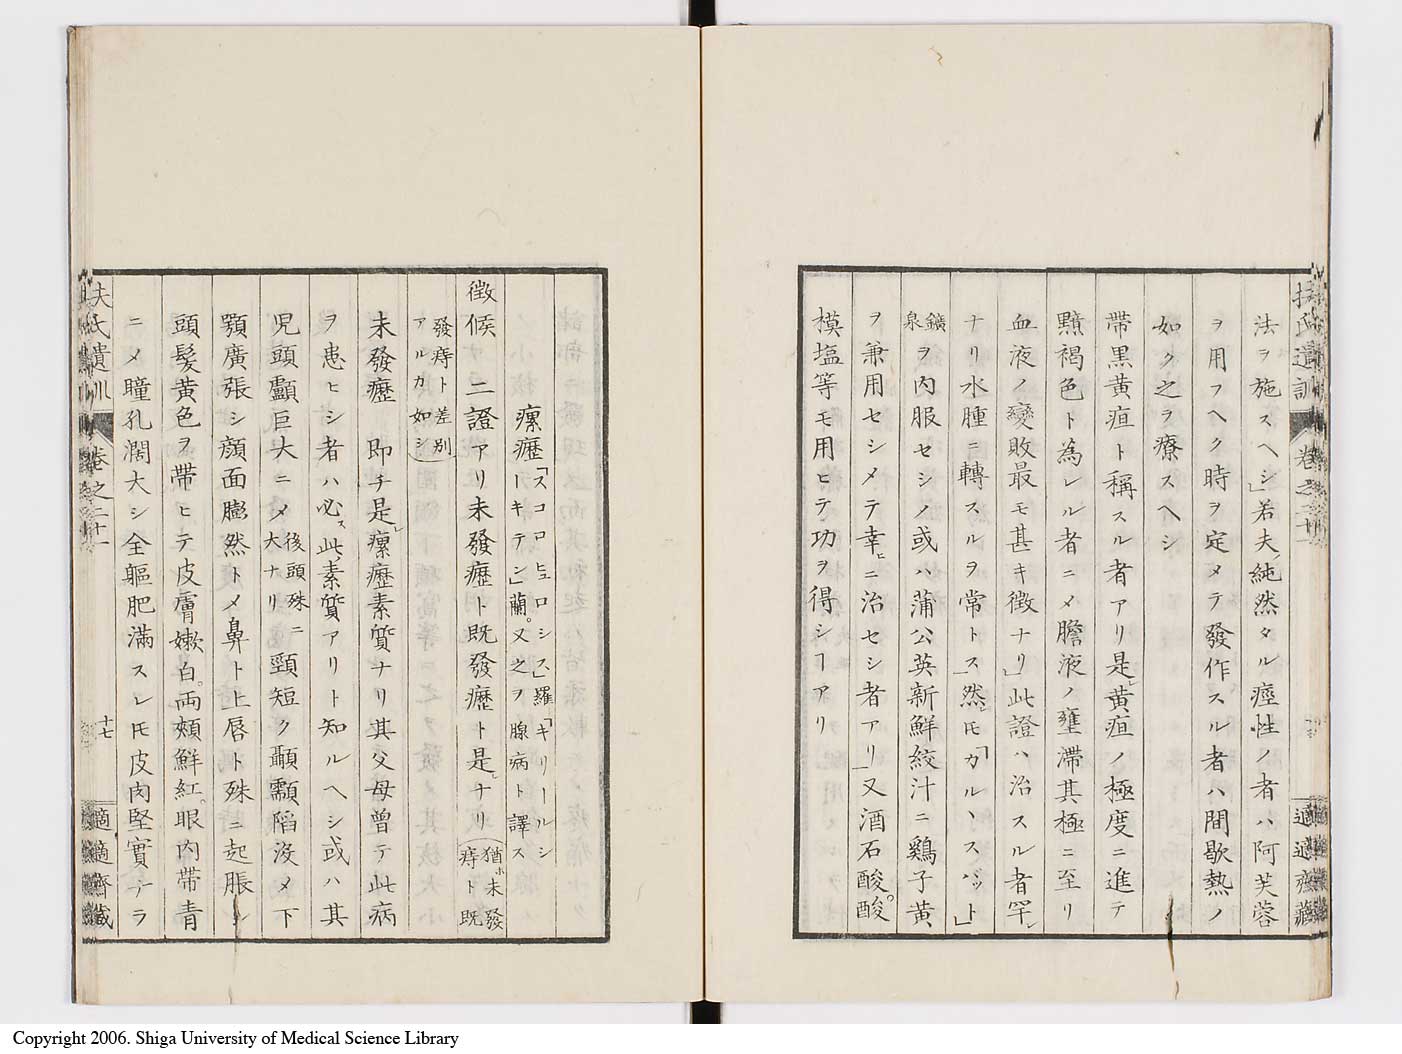 扶氏遺訓 卷之二十一 適適齋藏
法ヲ施スヘシ」若夫純然タル痙性ノ者ハ阿芙蓉
ヲ用フヘク時ヲ定メテ發作スル者ハ間歇熱ノ
如ク之ヲ療スヘシ
帶黒黄疸ト稱スル者アリ是レ黄疸ノ極度ニ進テ
黯褐色ト為レル者ニメ膽液ノ壅滯其極ニ至リ
血液ノ變敗最モ甚キ徴ナリ」此證ハ治スル者罕レ
ナリ水腫ニ轉スルヲ常トス」然レ𪜈「カルヽスバット」
鑛泉ヲ内服セシメ或ハ蒲公英新鮮絞汁ニ鷄子黄
ヲ兼用セシメテ幸ヒニ治セシ者アリ」又酒石酸。酸
模塩等モ用ヒテ功ヲ得シヿアリ
瘰癧「スコロヒュロシス」羅「ギリールシ
ーキテン」蘭。又之ヲ腺病ト譯ス
徴候 二證アリ未發癧ト既發癧ト是レナリ(猶ホ未發痔ト既
發痔ト差別アルカ如シ)
未發癧 即チ是レ瘰癧素質ナリ其父母曾テ此病
ヲ患ヒシ者ハ必ス此素質アリト知ルヘシ或ハ其
兒頭顱巨大ニメ後頭殊ニ大ナリ頸短ク顳顬陷沒メ下
顎廣張シ顔面膨然トメ鼻ト上唇ト殊ニ起脹シ
頭髮黄色ヲ帶ヒテ皮膚嫩白。両頰鮮紅。眼内帶青
ニメ瞳孔濶大シ全軀肥滿スレ𪜈皮肉堅實ナラ
扶氏遺訓 卷之二十一 十七 適適齋藏
Copyright 2006. Shiga University of Medical Science Library